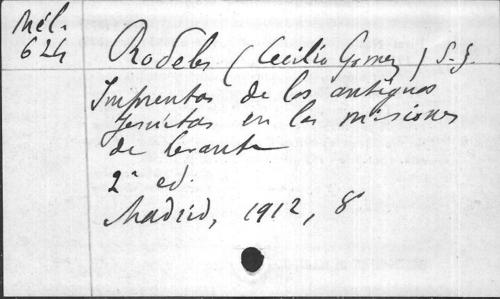 Mél.
624
Rodeles (Cecilio Gomez) S.J.
Imprentas de los antiguos
Jesuitas en las misiones
de levante
2ª ed.
Madrid, 1912, 8º